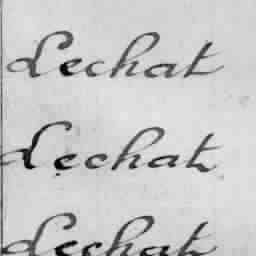 Lechat
Lechat
Lechat